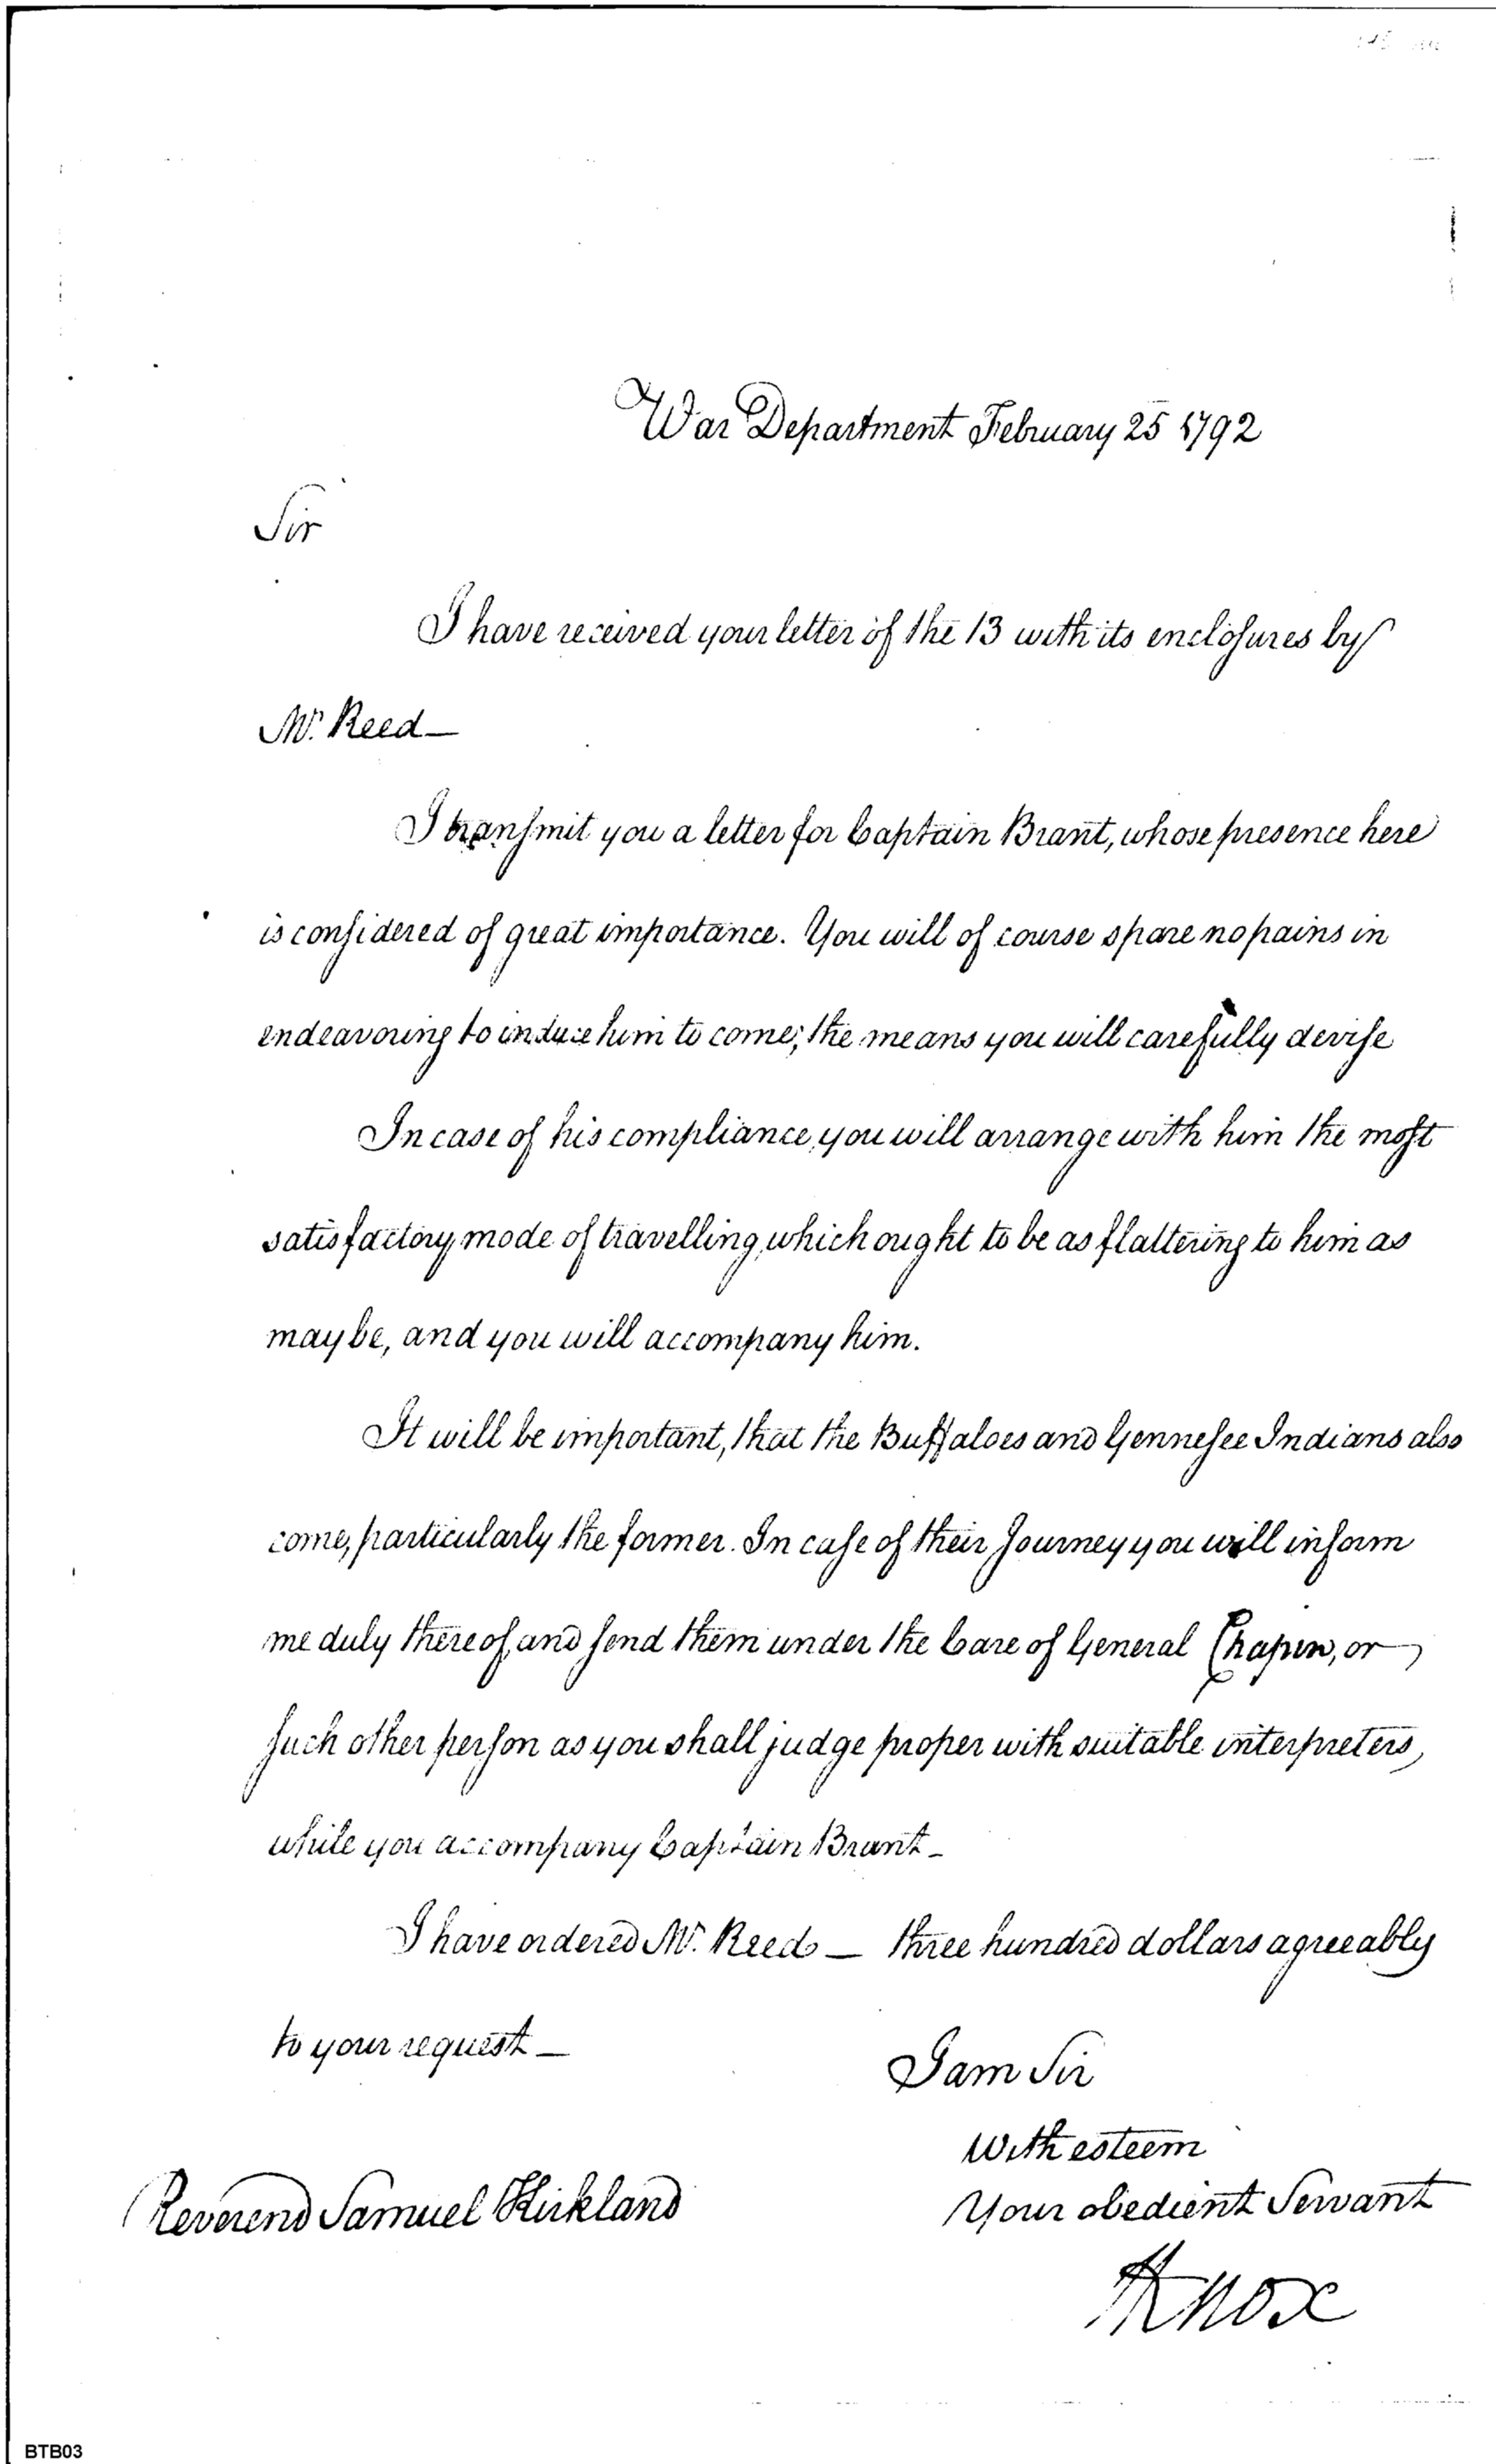 War Department February 25 1792
Sir
I have received your letter of the 13 with its enclosures by
Mr. Reed—
I transmit you a letter for Captain Brant, whose presence here
is considered of great importance. You will of course spare no pains in
endeavouring to induce him to come; the means you will carefully devise
In case of his compliance, you will arrange with him the most
satisfactory mode of travelling, which ought to be as flattering to him as
may be, and you will accompany him.
It will be important, that the Buffaloes and Gennesee Indians also
come, particularly the former. In case of their Journey you will inform
me duly thereof, and send them under the Care of General Chapin, or
such other person as you shall judge proper with suitable interpreters,
while you accompany Captain Brant—
I have ordered Mr. Reed — three hundred dollars agreeably
to your request—
I am Sir
With esteem
Your obedient Servant
Reverend Samuel Kirkland
HKnox
BTB03